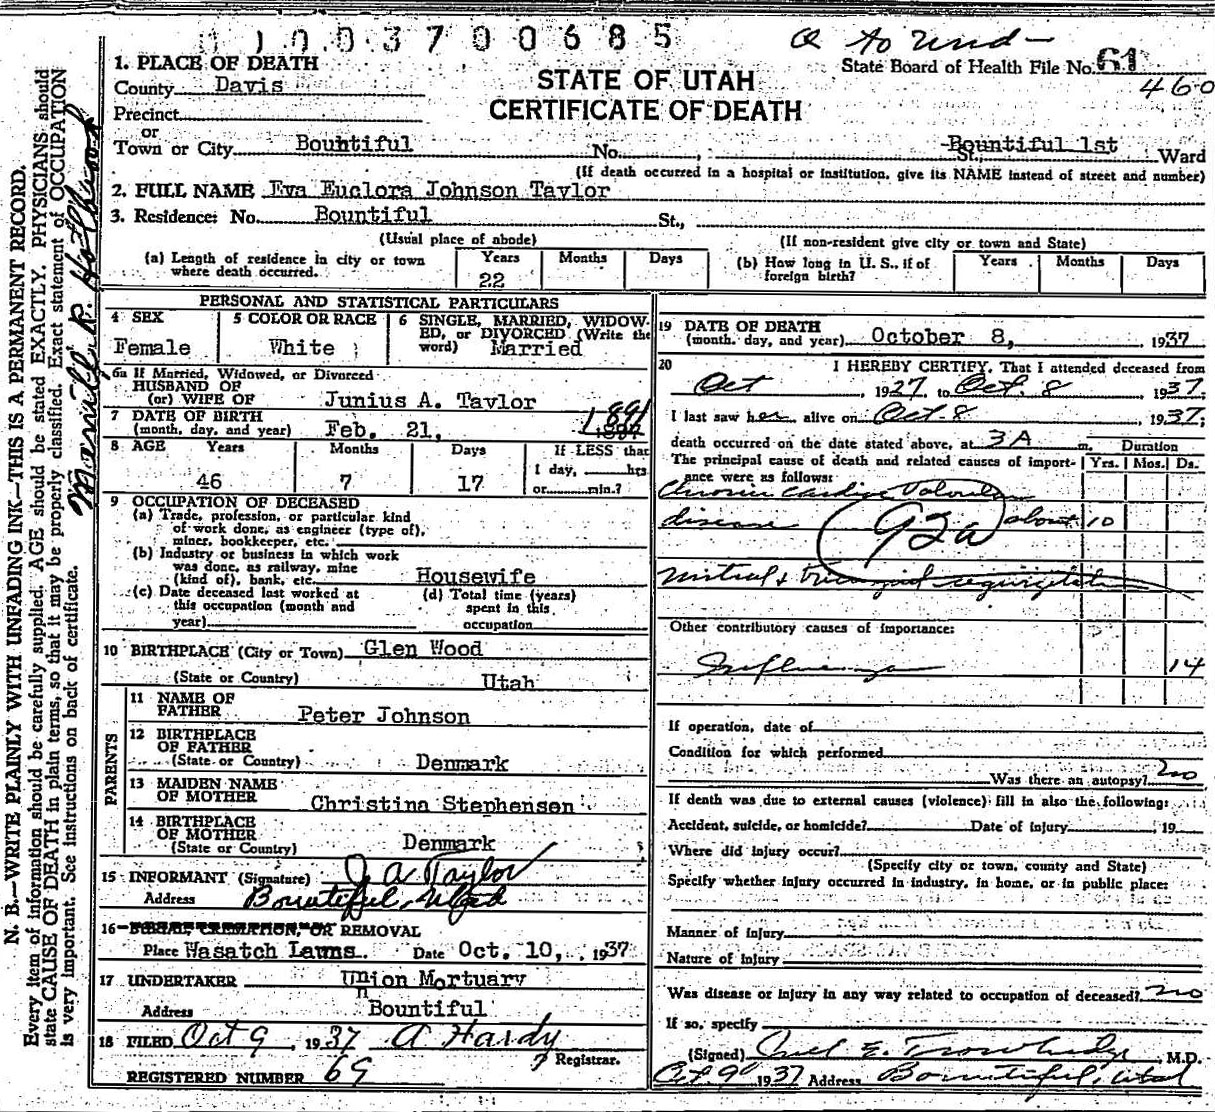 11 0 0 3 7 0 0 6 8 5
State Board of Health File No. 61
460
STATE OF UTAH
CERTIFICATE OF DEATH
1. PLACE OF DEATH
County Davis
Precinct
or
Town or City Bountiful No. , St., Bountiful 1st Ward
(If death occurred in a hospital or institution, give its NAME instead of street and number)
2. FULL NAME Eva Euclora Johnson Taylor
3. Residence: No. Bountiful St.,
(Usual place of abode) (If non-resident give city or town and State)
(a) Length of residence in city or town where death occurred. Years 22 Months Days
(b) How long in U. S., if of foreign birth? Years Months Days
PERSONAL AND STATISTICAL PARTICULARS
4 SEX Female
5 COLOR OR RACE White
6 SINGLE, MARRIED, WIDOWED, or DIVORCED (Write the word) Married
6a If Married, Widowed, or Divorced
HUSBAND OF
(or) WIFE OF Junius A. Taylor
7 DATE OF BIRTH
(month, day, and year) Feb. 21, 1891
8 AGE Years 46 Months 7 Days 17
If LESS than
1 day, hrs
or min.?
9 OCCUPATION OF DECEASED
(a) Trade, profession, or particular kind
of work done, as engineer (type of),
miner, bookkeeper, etc.
(b) Industry or business in which work
was done, as railway, mine
(kind of), bank, etc. Housewife
(c) Date deceased last worked at
this occupation (month and
year)
(d) Total time (years)
spent in this
occupation
10 BIRTHPLACE (City or Town) Glen Wood
(State or Country) Utah
PARENTS
11 NAME OF
FATHER Peter Johnson
12 BIRTHPLACE
OF FATHER
(State or Country) Denmark
13 MAIDEN NAME
OF MOTHER Christina Stephensen
14 BIRTHPLACE
OF MOTHER
(State or Country) Denmark
15 INFORMANT (Signature) J A Taylor
Address Bountiful,
16 BURIAL, CREMATION, OR REMOVAL
Place Wasatch Lawns Date Oct. 10, 1937
17 UNDERTAKER Union Mortuary
Address Bountiful
18 FILED Oct 9, 1937 A Hardy
Registrar.
REGISTERED NUMBER 69
19 DATE OF DEATH
(month, day, and year) October 8, 1937
20 I HEREBY CERTIFY, That I attended deceased from
Oct, 1927, to Oct. 8 1937.
I last saw her alive on Oct. 8 1937;
death occurred on the date stated above, at 3 A m. Duration
The principal cause of death and related causes of importance were as follows: Yrs. Mos. Ds.
Chronic Cardiac Valvular
disease 92a about 10
mitral & tricuspid regurgitation
Other contributory causes of importance:
Influenza 14
If operation, date of
Condition for which performed
Was there an autopsy? no
If death was due to external causes (violence) fill in also the following:
Accident, suicide, or homicide? Date of injury , 19
Where did injury occur?
(Specify city or town, county and State)
Specify whether injury occurred in industry, in home, or in public place:
Manner of injury
Nature of injury
Was disease or injury in any way related to occupation of deceased? no
If so, specify
(Signed) E. Trowbridge, M.D.
Oct. 9 1937 Address Bountiful, Utah
N. B.—WRITE PLAINLY WITH UNFADING INK—THIS IS A PERMANENT RECORD.
Every item of information should be carefully supplied. AGE should be stated EXACTLY. PHYSICIANS should
state CAUSE OF DEATH in plain terms, so that it may be properly classified. Exact statement of OCCUPATION
is very important. See instructions on back of certificate.